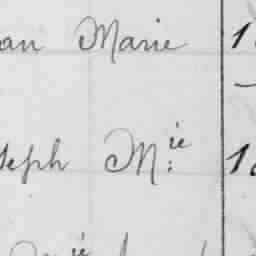 an Marie 1
seph M.ie 1